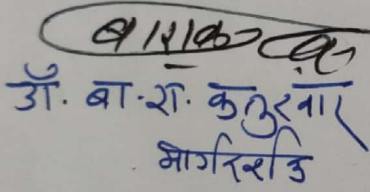 डॉ. बा. रा. कतुरवार
मार्गदर्शक